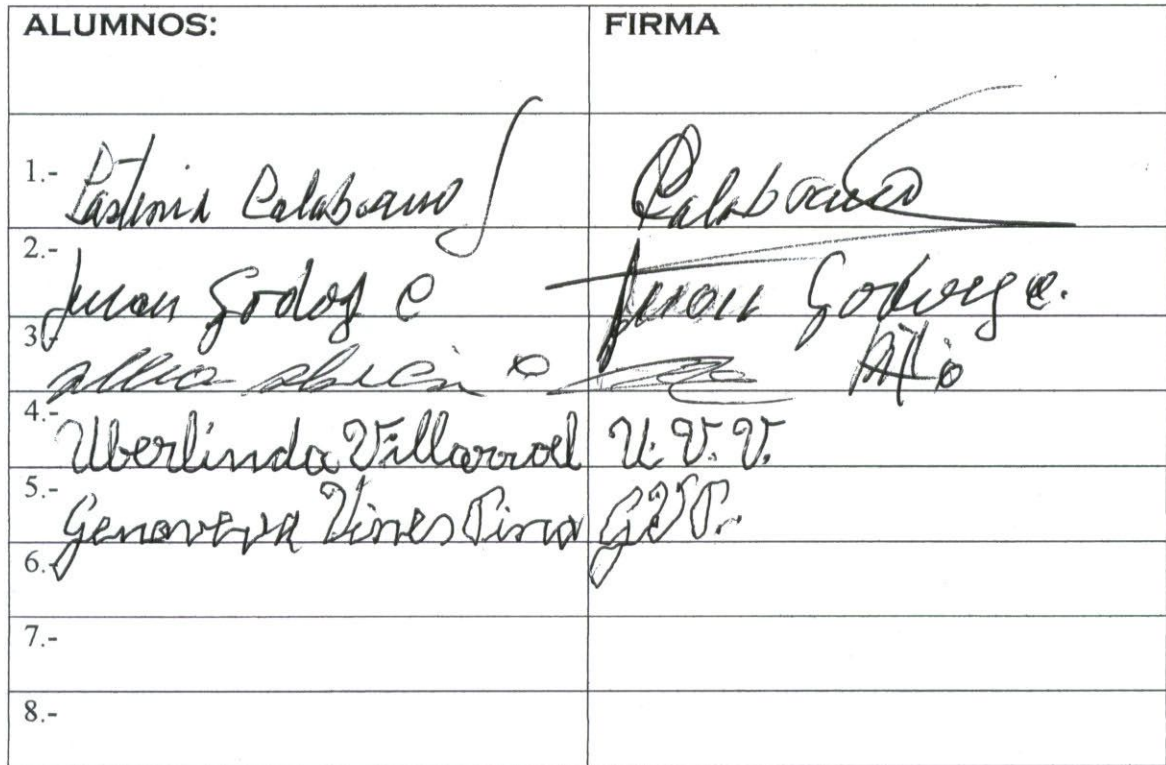 ALUMNOS: FIRMA
1.- Calabrano Calabrano
2.- Juan Godoy C Juan Godoy C.
3.-
4.- Uberlinda Villarroel U. V. V.
5.- Genoveva Vines Pino G.V.P.
6.-
7.-
8.-